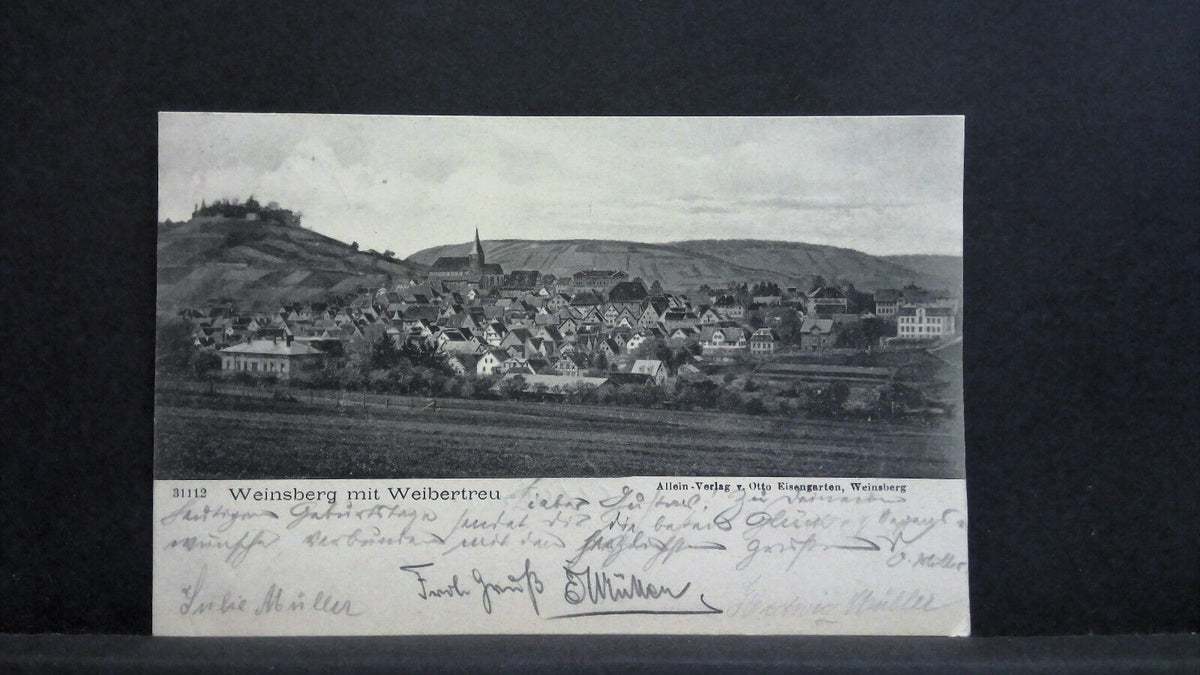 31112 Weinsberg mit Weibertreu
Allein-Verlag v. Otto Eisengarten, Weinsberg
Lieber Gustav! Zu Deinem
heutigen Geburtstage sendet dir die besten Glück- & Segens-
wünsche, verbunden mit den herzlichsten Grüßen
Müller
Froh Gruß Müller
Julie Müller
Hedwig Müller